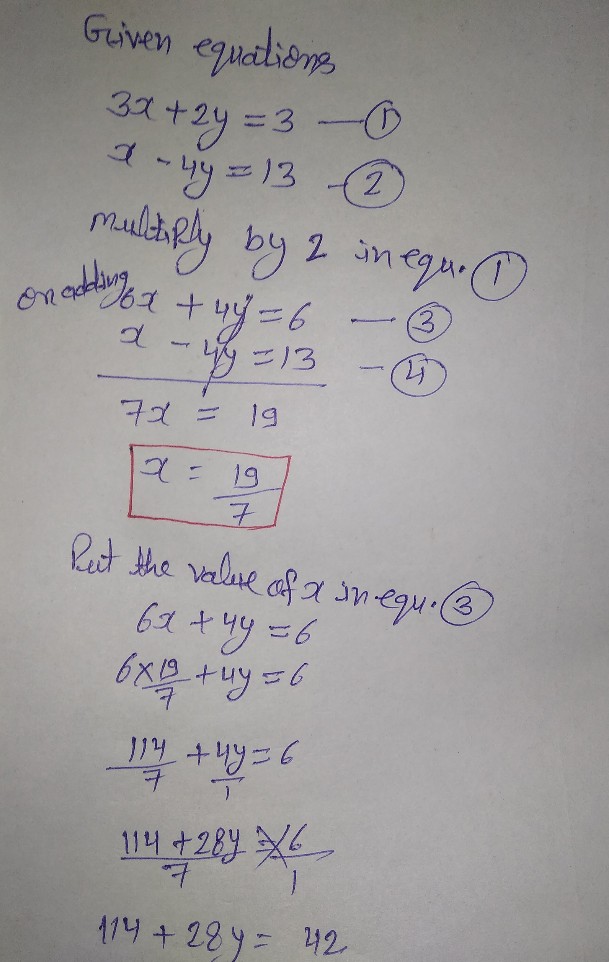 Given equations
3x + 2y = 3 — ①
x - 4y = 13 - ②
multiply by 2 in equ. ①
on adding
6x + 4y = 6 — ③
x - 4y = 13 - ④
7x = 19
x = 19/7
Put the value of x in equ. ③
6x + 4y = 6
6×19/7 + 4y = 6
114/7 + 4y/1 = 6
114 + 28y/7 = 6/1
114 + 28y = 42